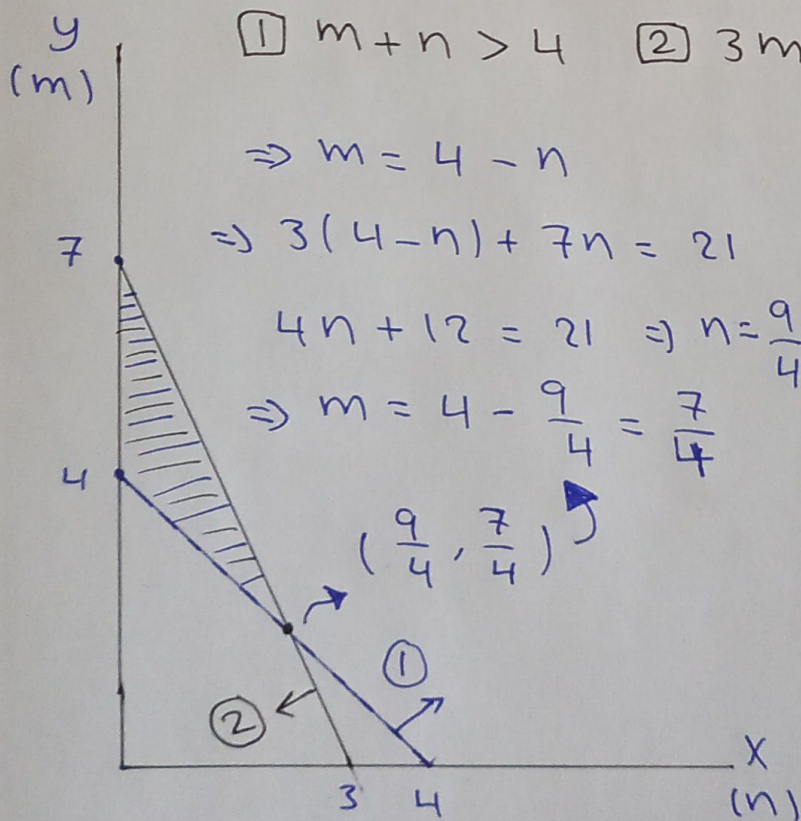 y
(m)
1 m + n > 4 2 3m
⇒ m = 4 - n
7
⇒ 3(4-n) + 7n = 21
4n + 12 = 21 ⇒ n = 9/4
⇒ m = 4 - 9/4 = 7/4
4
(9/4, 7/4)
1
2
3 4
x
(n)